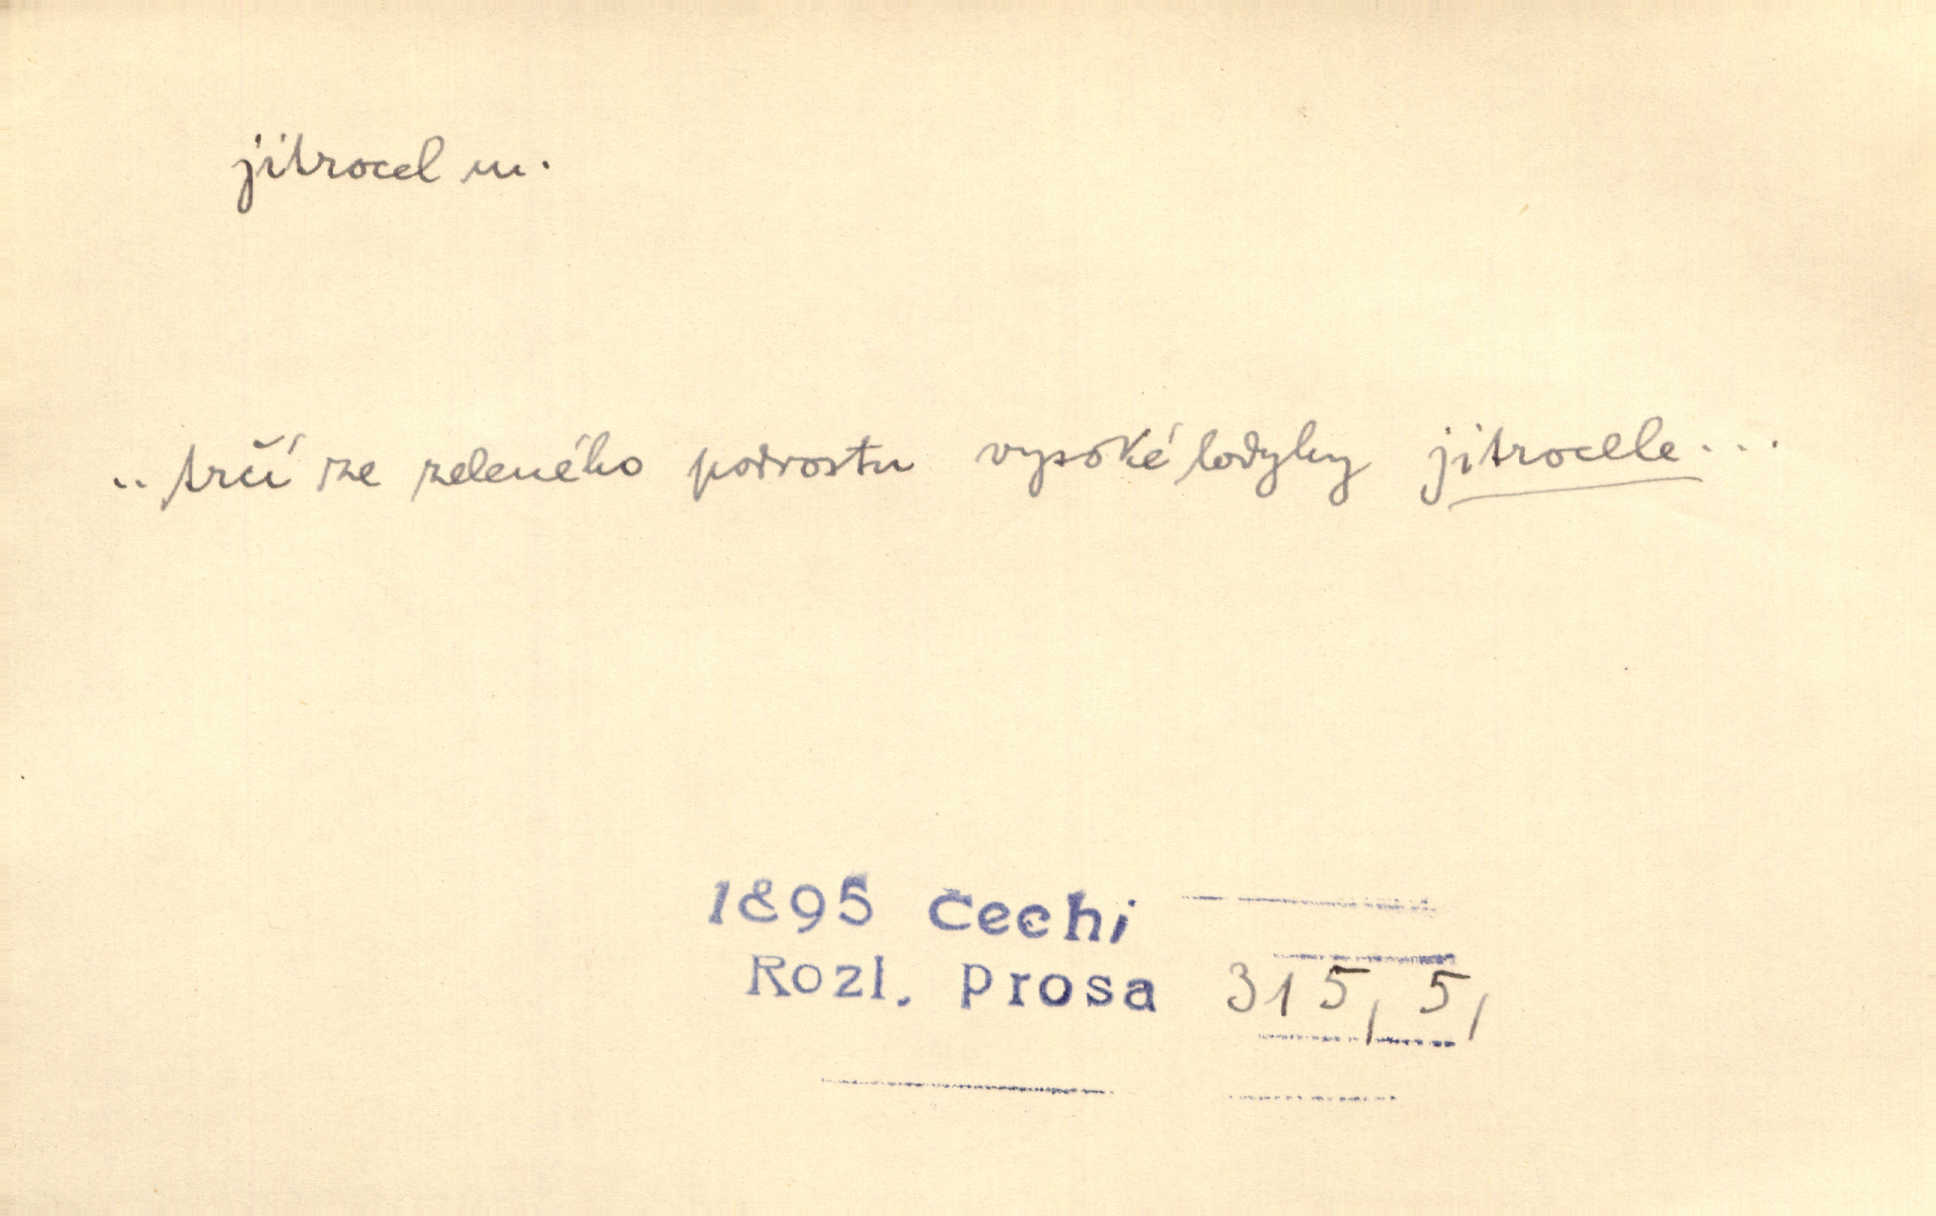 jitrocel m.
.. trčí ze zeleného podrostu vysoké lodyhy jitrocele...
1895 čechi
Rozl. prosa 315, 5,